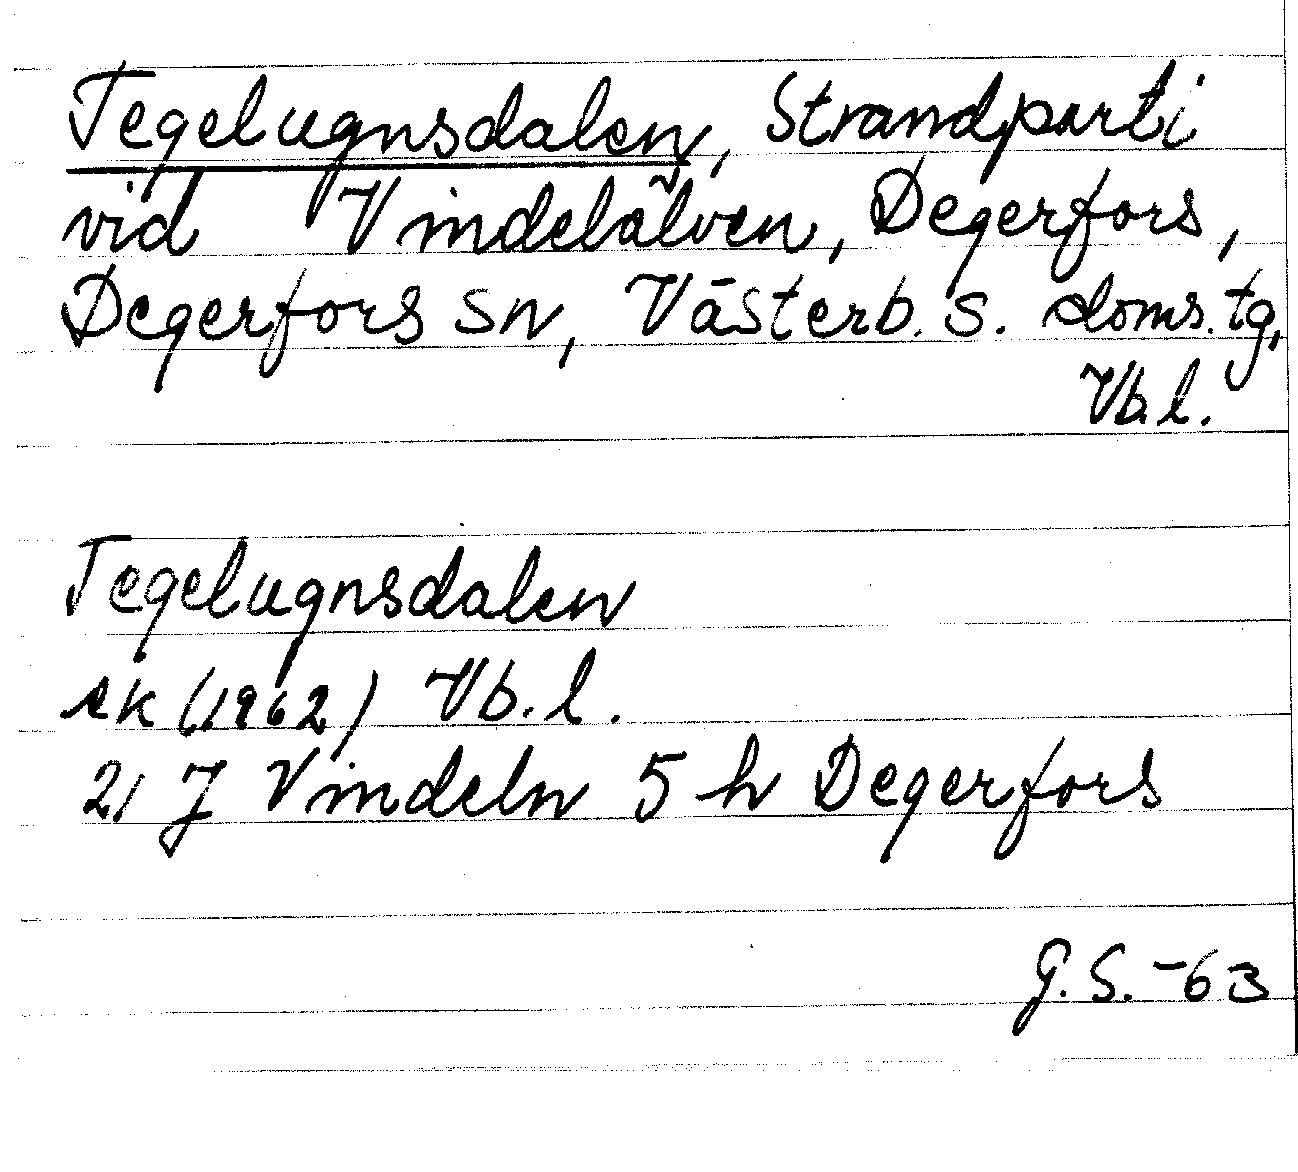 Tegelugnsdalen, Strandparti
vid Vindelälven, Degerfors,
Degerfors sn, Västerb. s. doms. tg,
Vb. l.
Tegelugnsdalen
ek (1962) Vb. l.
21 J Vindeln 5 h Degerfors
G. S. -63